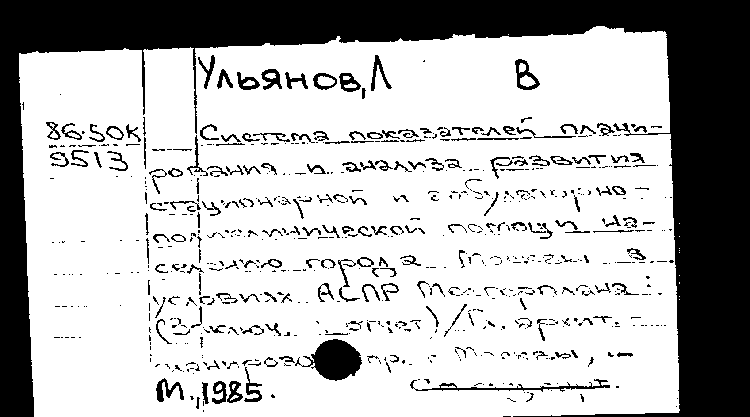 Ульянов, Л В
86-50к Система показателей плани-
9513 рования и анализа развития
стационарной и амбулаторно-
поликлинической помощи на-
селению города Москвы в
условиях АСПР Мосгорплана:
(Заключ. отчет)/Гл. архит.-
планирово пр. г Москвы,
М., 1985.